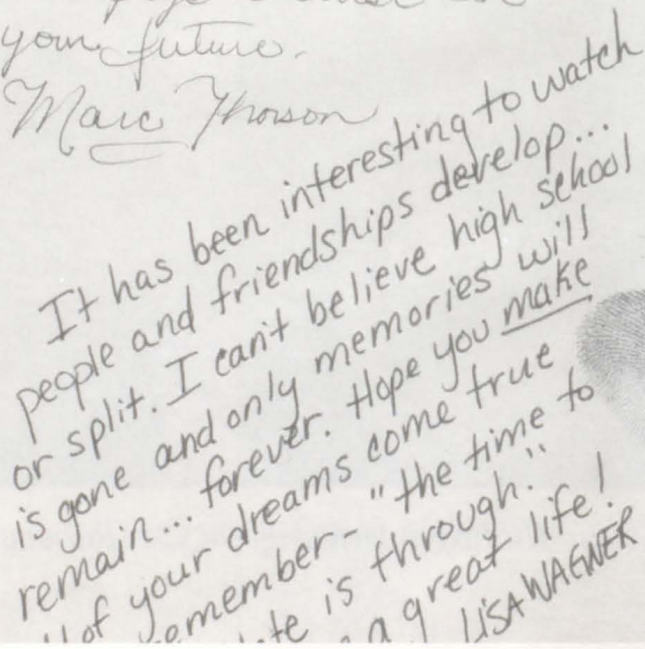 your future.
Marc Thorson
It has been interesting to watch
people and friendships develop...
or split. I can't believe high school
is gone and only memories will
remain... forever. Hope you make
of your dreams come true
remember - "the time to
is through."
a great life!
LISA WAGNER